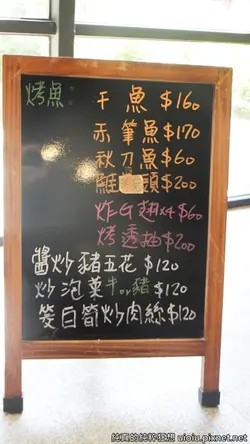 烤魚:
午魚$160
赤筆魚$170
秋刀魚$60
頭$200
炸G翅x4$60
烤透抽$200
醬炒豬五花$120
炒泡菜牛or豬$120
筊白筍炒肉絲$120
純真的純幹狂想 uioiu.pixnet.net